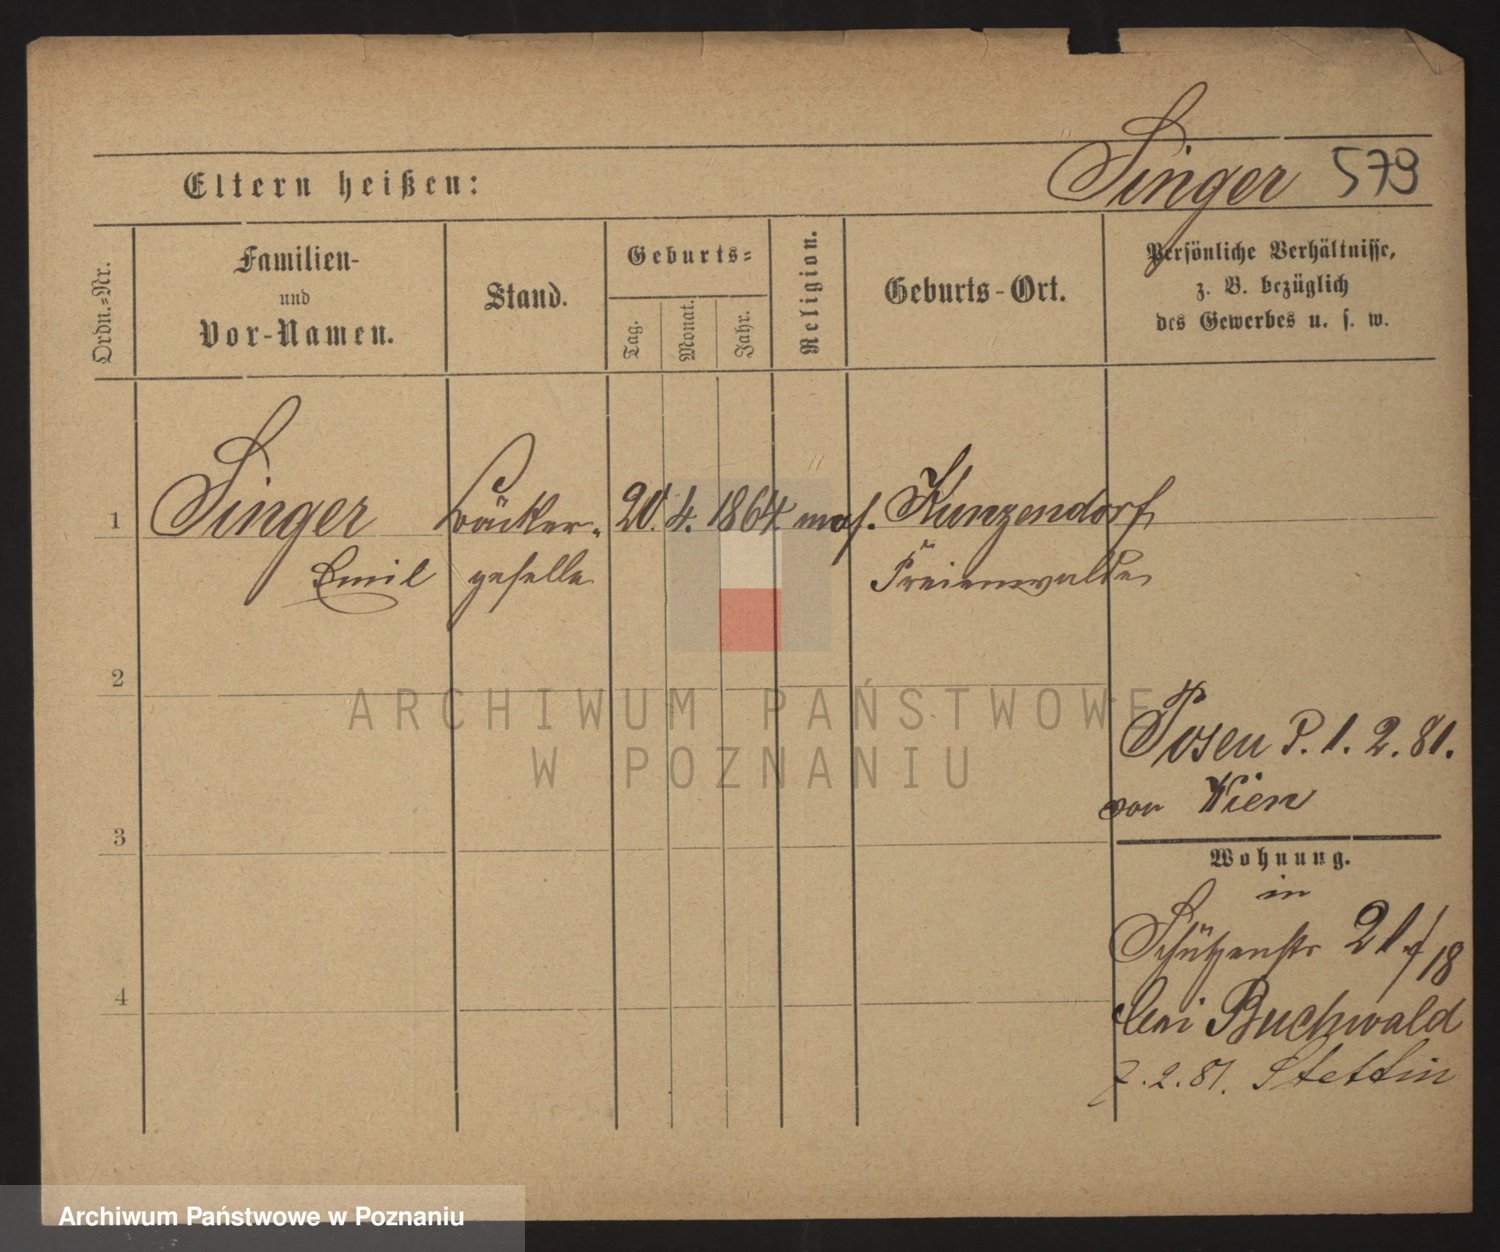 Singer 579
Eltern heißen:
Ordn.-Nr.
Familien-
und
Vor-Namen.
Stand.
Geburts-
Tag.
Monat.
Jahr.
Religion.
Geburts-Ort.
Persönliche Verhältnisse,
z. B. bezüglich
des Gewerbes u. s. w.
1 Singer Bäcker- 20. 4. 1864 mos. Kunzendorf
Emil geselle Freienwalde
2
ARCHIWUM PAŃSTWOWE
W POZNANIU
Posen P. 1. 2. 81.
von Wien
3
Wohnung.
in
Schützenstr 21./18
bei Buchwald
4
7. 2. 81. Stettin
Archiwum Państwowe w Poznaniu